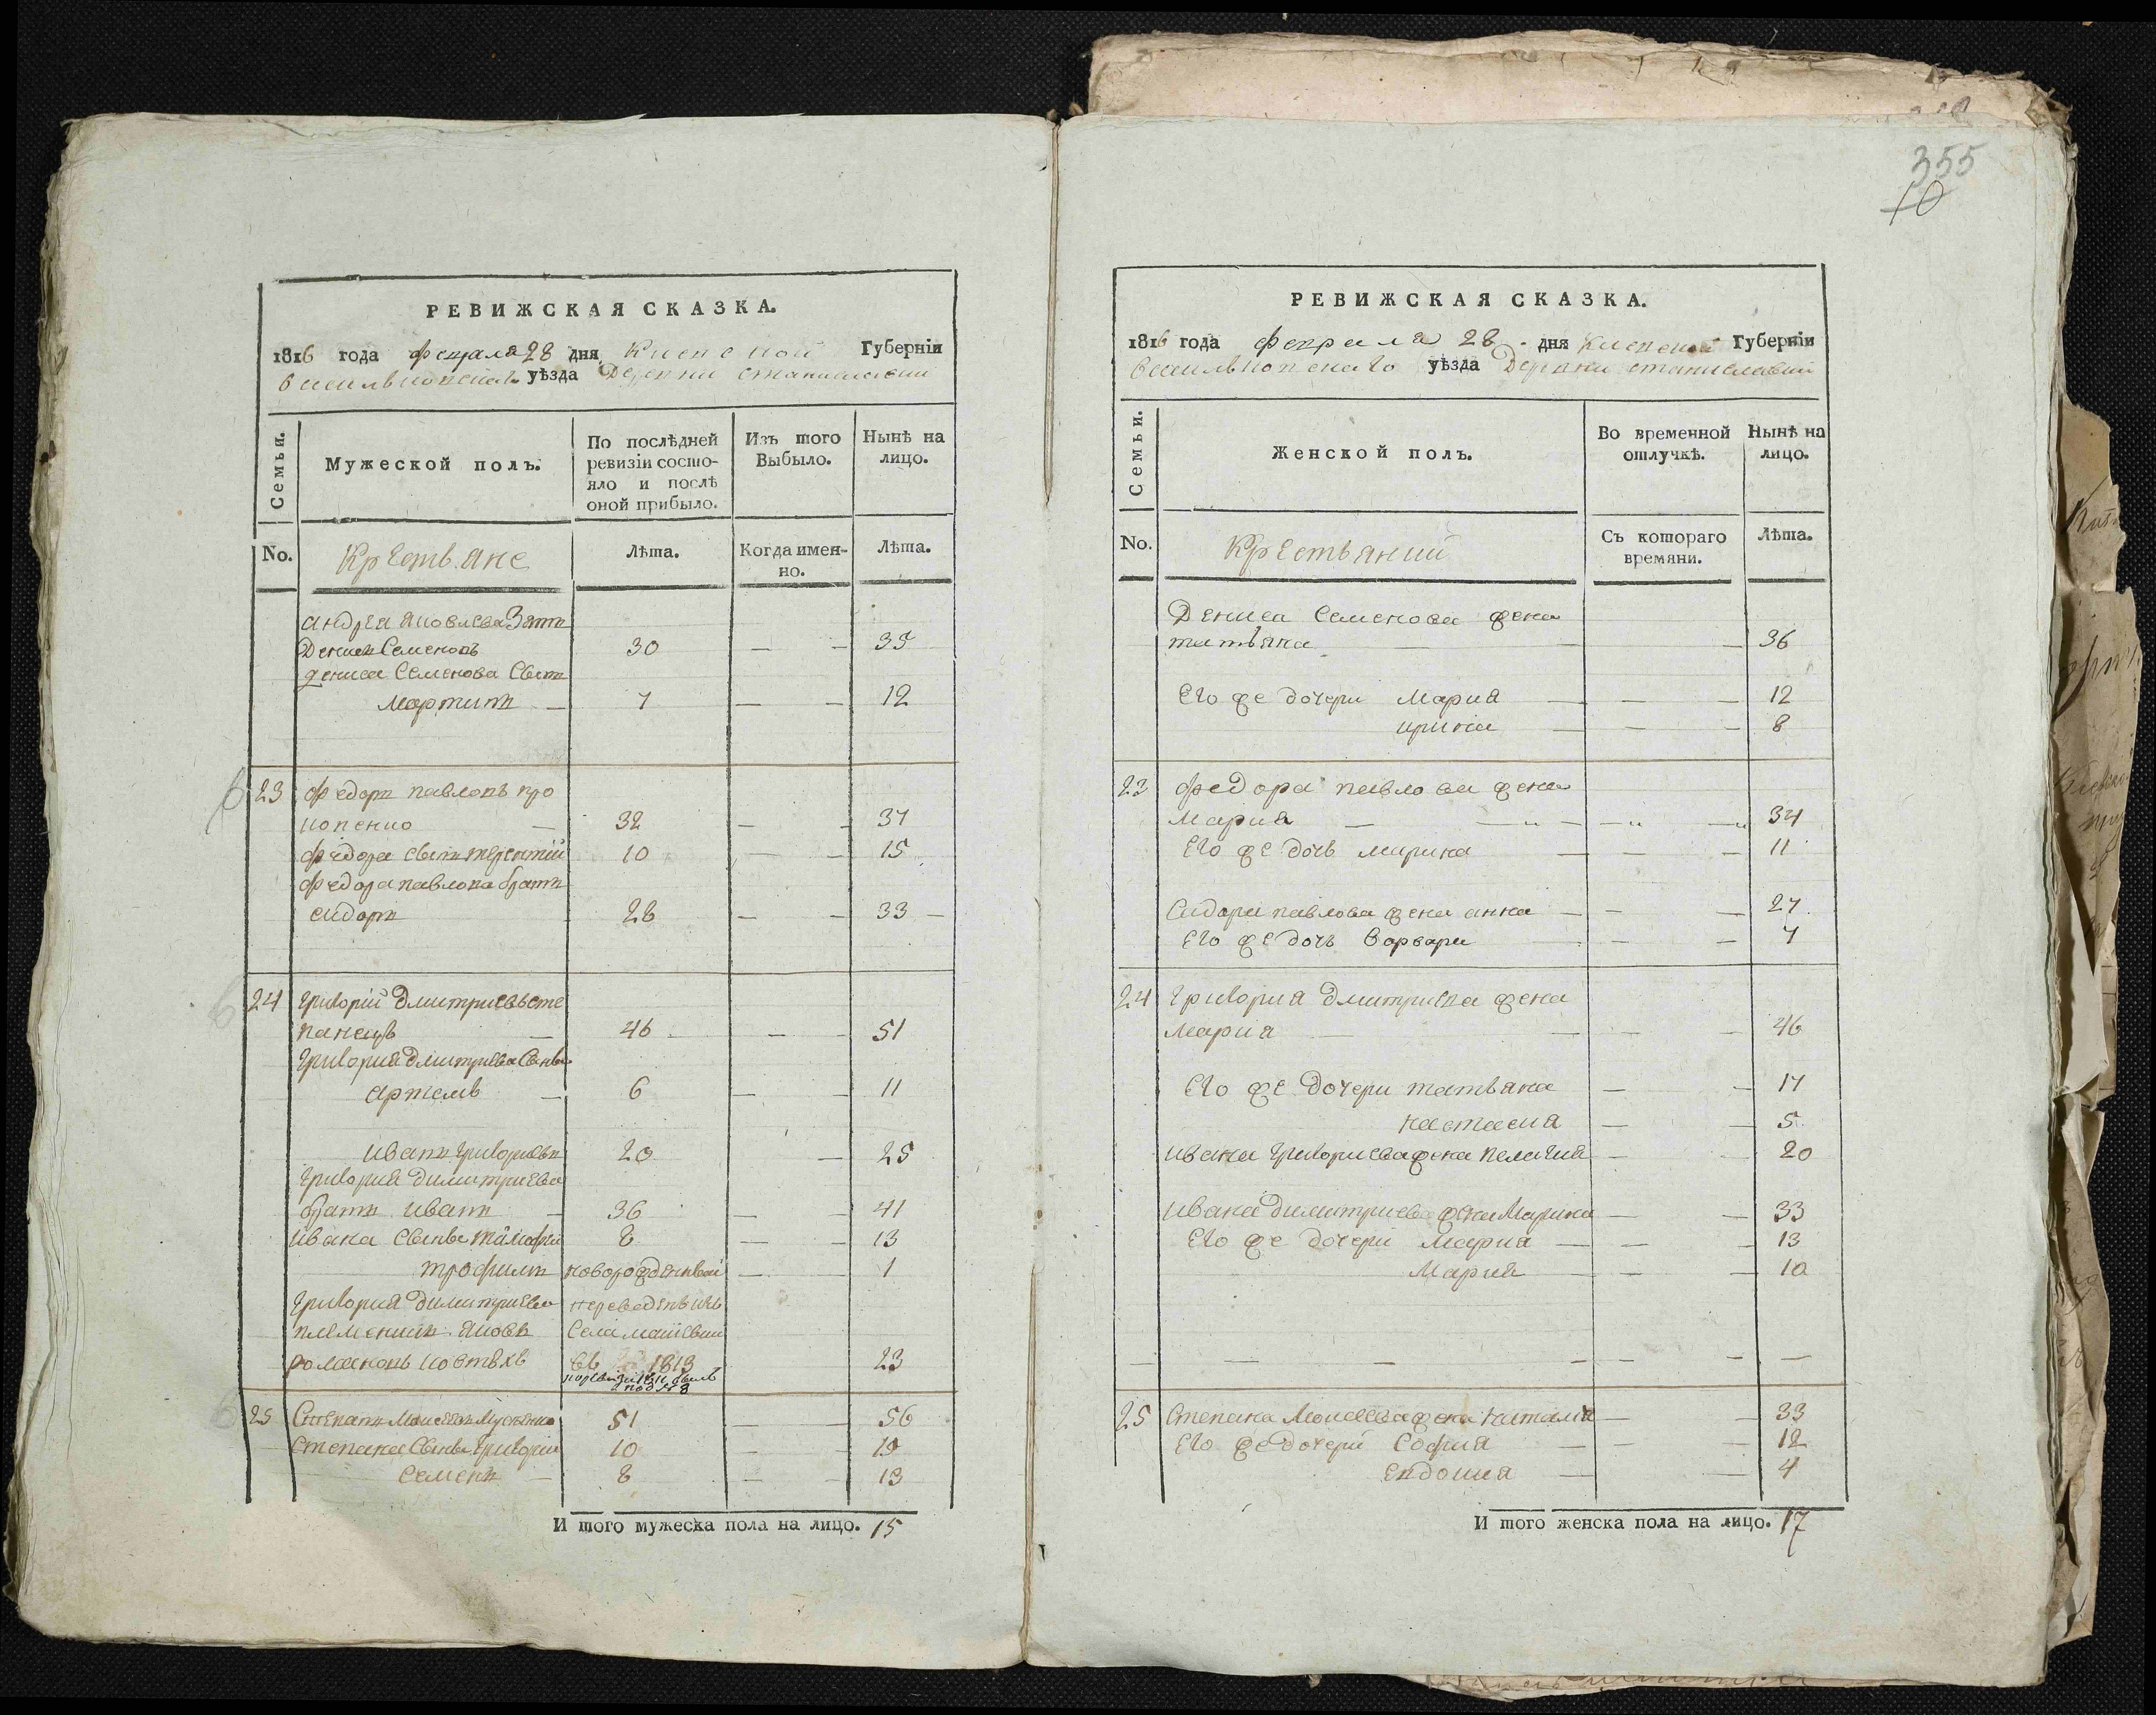 355
10
РЕВИЖСКАЯ СКАЗКА.
1816 года февраля 28 дня Киевской Губерніи
Васильковскаго уѣзда Деревни Станиславки
Семьи.
Мужеской полъ.
По послѣдней ревизіи состояло и послѣ оной прибыло.
Изъ того Выбыло.
Нынѣ на лицо.
No.
Крестьяне
Лѣта.
Когда именно.
Лѣта.
андрея яковлева Зять
Денисъ Семеновъ 30 — — 35
дениса Семенова Сынъ
мартинъ — 7 — — 12
23 федоръ павловъ про
копенко — 32 — — 37
федора сынъ терентій 10 — — 15
федора павлова братъ
сидоръ 28 — — 33 —
24 григорій дмитриевъ сте
панецъ — 46 — — 51
григория дмитриева Сынвя
артемъ — 6 — — 11
иванъ григориевъ 20 — 25
григория димитриева
братъ иванъ — 36 — — 41
ивана Сынвя тимофей 8 — — 13
трофимъ новорожденный — — 1
григория димитриева переведенъ изъ
племеникъ яковъ Села
романовъ въ 1813 23
25 Степанъ Моисеевъ 51 — — 56
Степана Сынвя григорій 10 — — 15
Семенъ — 8 — — 13
И того мужеска пола на лицо. 15
РЕВИЖСКАЯ СКАЗКА.
1816 года февраля 28 дня Киевской Губерніи
Васильковскаго уѣзда Деревни станиславки
Семьи.
Женской полъ.
Во временной отлучкѣ.
Нынѣ на лицо.
No.
Крестьянки
Съ котораго времяни.
Лѣта.
Дениса Семенова жена
татьяна — — — 36
Его же дочери Мария — — — 12
ирина — — — 8
23 федора павлова жена
Мария — — — — 34
Его же дочь марина — — — 11
Сидора павлова жена анна — — — 27
Его же дочь Варвара — — — 7
24 григория дмитриева жена
мария — — — — 46
Его же дочери татьяна — — 17
настасия — — 5
ивана григориева жена пелагия — — 20
ивана димитриева жена Марина — — 33
Его же дочери Мария — — — 13
Мария — — — 10
— — — — — — —
25 Степана Моисеева жена наталия — — 33
Его же дочери София — — — 12
Евдокия — — 4
И того женска пола на лицо. 17